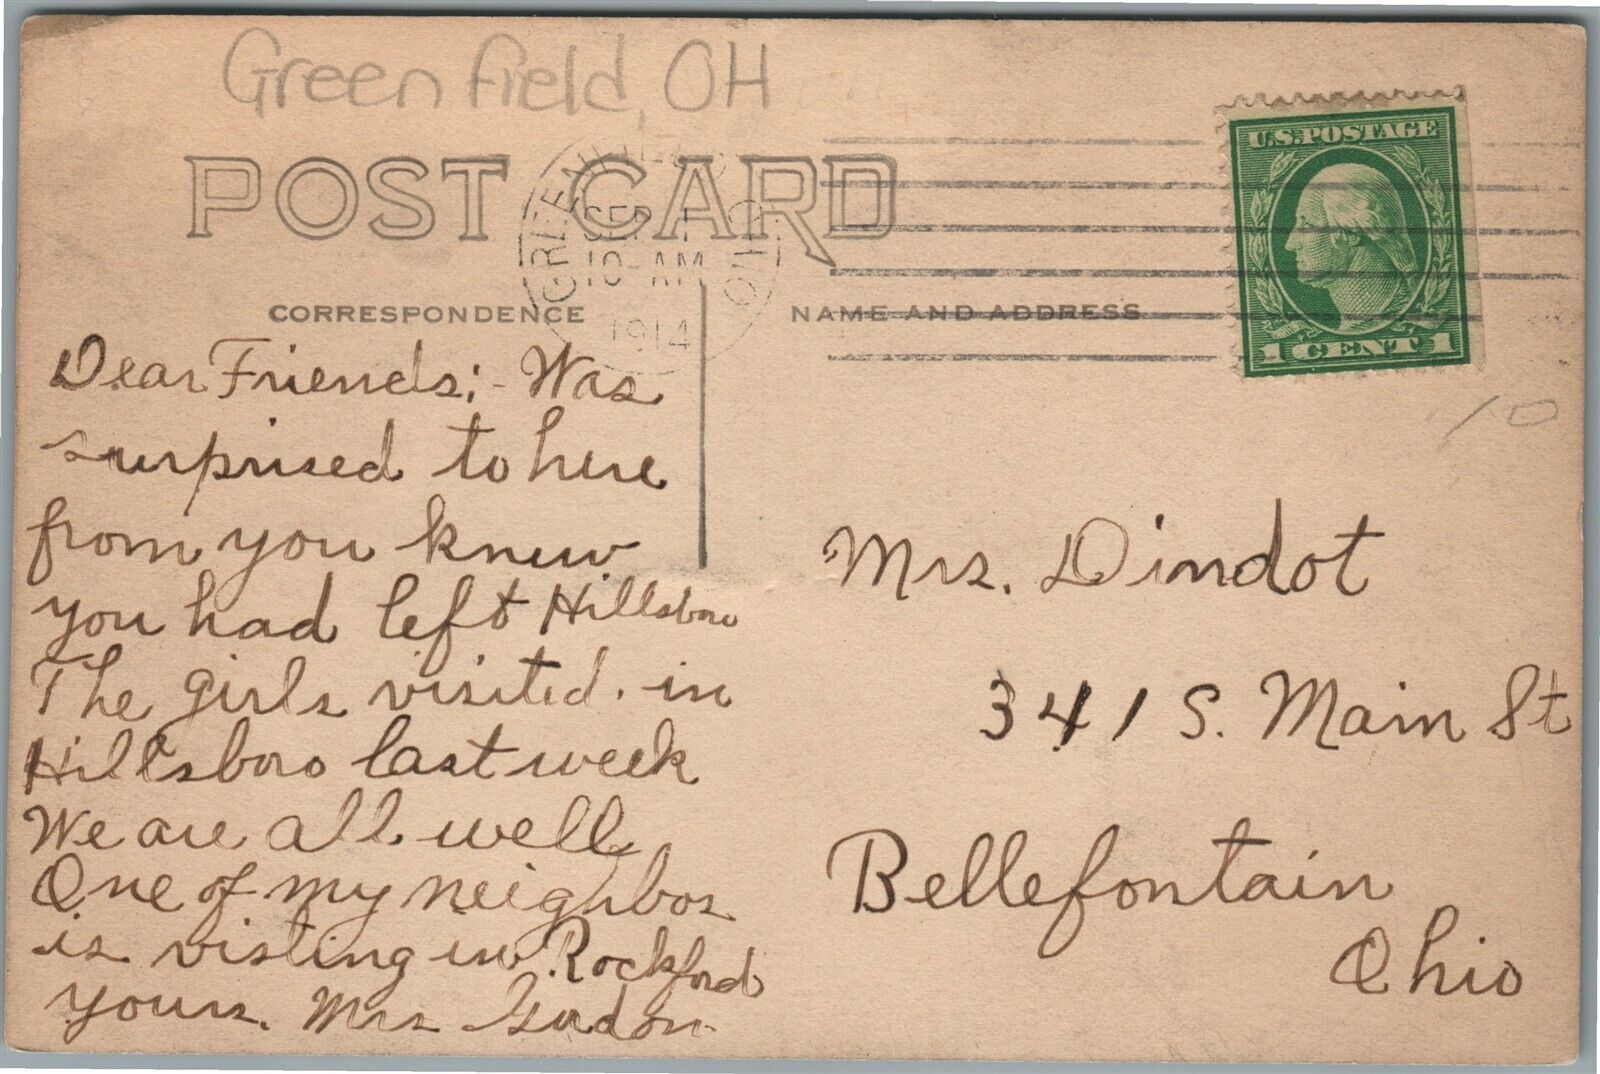 Greenfield, OH
POST CARD
GREENFIELD OHIO
SEP
10-AM
1914
U.S. POSTAGE
1 CENT 1
10
CORRESPONDENCE
NAME AND ADDRESS
Dear Friends;- Was
surprised to here
from you knew
you had left Hillsboro
The girls visited. in
Hillsboro last week
We are all well
One of my neighbors
is visting in Rockford
yours. Mrs Gordon
Mrs. Dindot
341 S. Main St
Bellefontain
Ohio